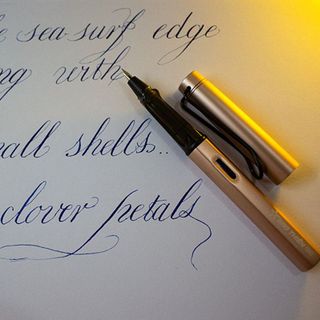 e sea-surf edge
ng with
all shells..
clover petals